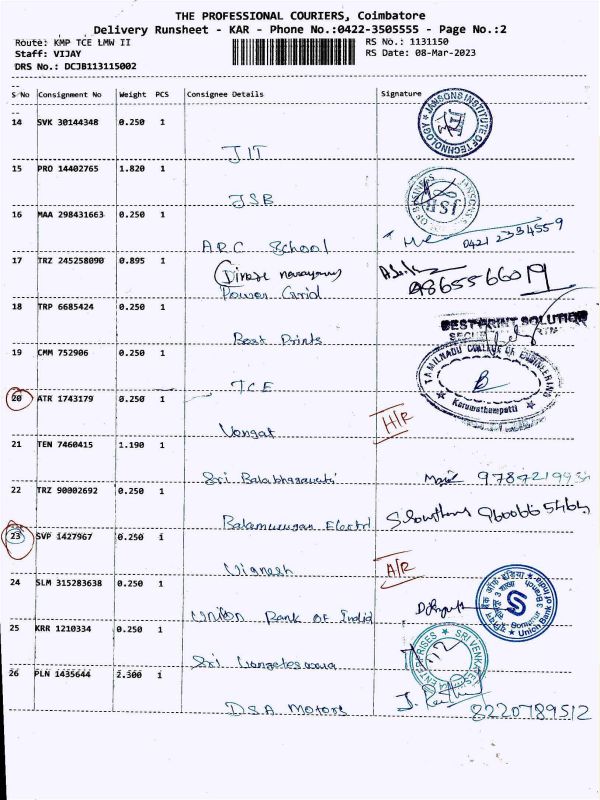 THE PROFESSIONAL COURIERS, Coimbatore
Delivery Runsheet - KAR - Phone No.:0422-3505555 - Page No.:2
Route: KMP TCE LMW II RS No.: 1131150
Staff: VIJAY RS Date: 08-Mar-2023
DRS No.: DCJB113115002
S No Consignment No Weight PCS Consignee Details Signature
14 SVK 30144348 0.250 1
JANSONS INSTITUTE OF TECHNOLOGY
JIT
15 PRO 14402765 1.820 1
JSB
JSB
16 MAA 298431663 0.250 1
ARC School 0421 2334559
17 TRZ 245258090 0.895 1
Power Grid
18 TRP 6685424 0.250 1
BEST PRINT SOLUTION
Best Prints
19 CMM 752906 0.250 1
TAMILNADU COLLEGE OF ENGINEERING
Karumathampatti
TCE
20 ATR 1743179 0.250 1
21 TEN 7460415 1.190 1
22 TRZ 90002692 0.250 1
Balamurugan Electri 9600665464
23 SVP 1427967 0.250 1
Vignesh
24 SLM 315283638 0.250 1
Union Bank of India
25 KRR 1210334 0.250 1
26 PLN 1435644 2.300 1
DSA Motors 8220789512